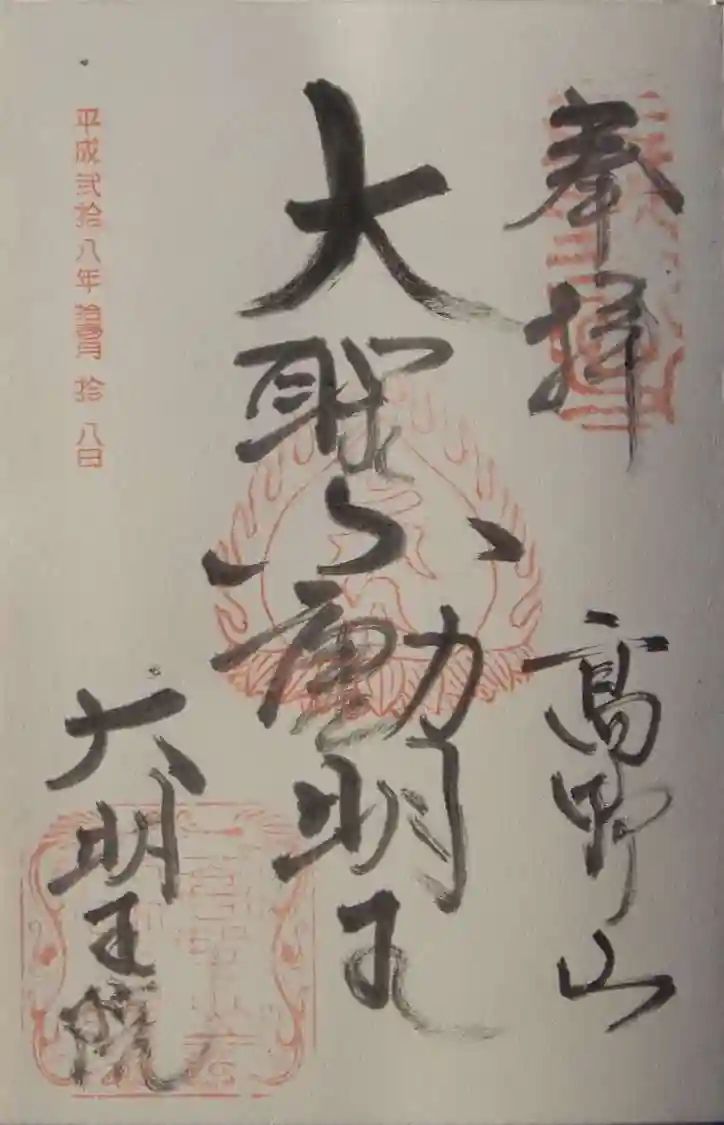 奉拝
高野山
大聖不動明王
大明王院
平成弐拾八年拾壹月拾八日